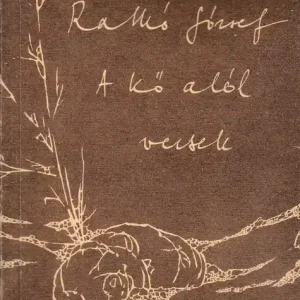 Ratkó József
A kő alól
versek